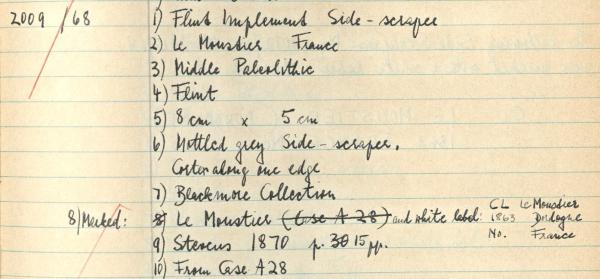 2009/68 1) Flint Implement Side-scraper
2) Le Moustier France
3) Middle Paleolithic
4) Flint
5) 8 cm x 5 cm
6) Mottled grey Side-scraper.
Cortex along one edge
7) Blackmore Collection
8) Marked: 8) Le Moustier (Case A 28) and white label: CL Le Moustier
1863 Dordogne
No. France
9) Stevens 1870 p. 30 15 pp.
10) From Case A28